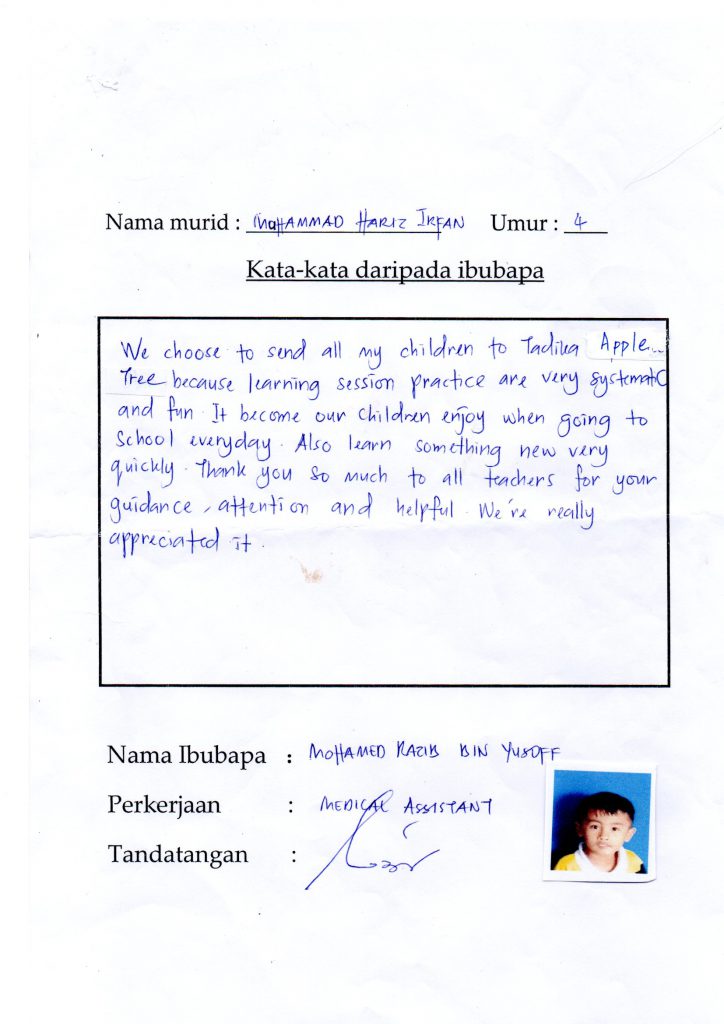 Nama murid : MUHAMMAD HARIZ IRFAN Umur : 4
Kata-kata daripada ibubapa
We choose to send all my children to Tadika Apple
Tree because learning session practice are very systematic
and fun. It become our children enjoy when going to
School everyday. Also learn something new very
quickly. Thank you so much to all teachers for your
guidance, attention and helpful. We're really
appreciated it.
Nama Ibubapa : MOHAMED RAZIB BIN YUSOFF
Perkerjaan : MEDICAL ASSISTANT
Tandatangan :